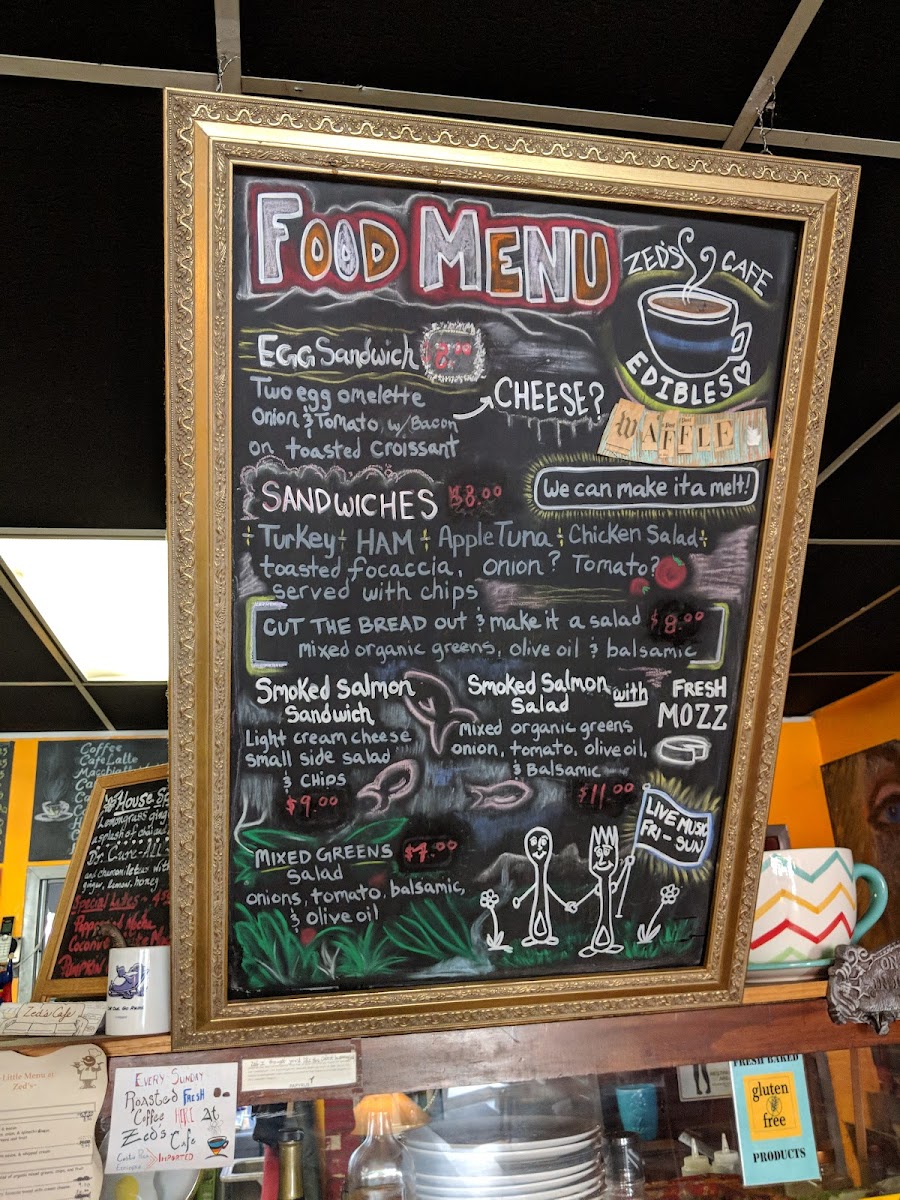 FOOD MENU
ZED'S CAFE
EDIBLES
WAFFLE
Egg Sandwich
Two egg omelette
onion & Tomato, w/ Bacon
on toasted croissant
CHEESE?
We can make it a melt!
SANDWICHES $8.00
Turkey HAM Apple Tuna Chicken Salad
toasted focaccia, onion? Tomato?
served with chips
CUT THE BREAD out & make it a salad $8.00
mixed organic greens, olive oil & balsamic
Smoked Salmon
Sandwich
Light cream cheese
small side salad
& CHIPS
$9.00
Smoked Salmon
Salad
with FRESH
MOZZ
mixed organic greens
onion, tomato, olive oil,
& Balsamic
$11.00
MIXED GREENS
Salad
onions, tomato, balsamic,
& olive oil
LIVE MUSIC
FRI - SUN
Coffee
Cafe Latte
House
Lemongrass
a splash of
Dr. Cure-All
ginger, lemon, honey
Special
Zed's Cafe
Little Menu at
Zed's
EVERY SUNDAY
Roasted FRESH
Coffee HERE At
Zed's Cafe
IMPORTED
FRESH BAKED
gluten
free
PRODUCTS